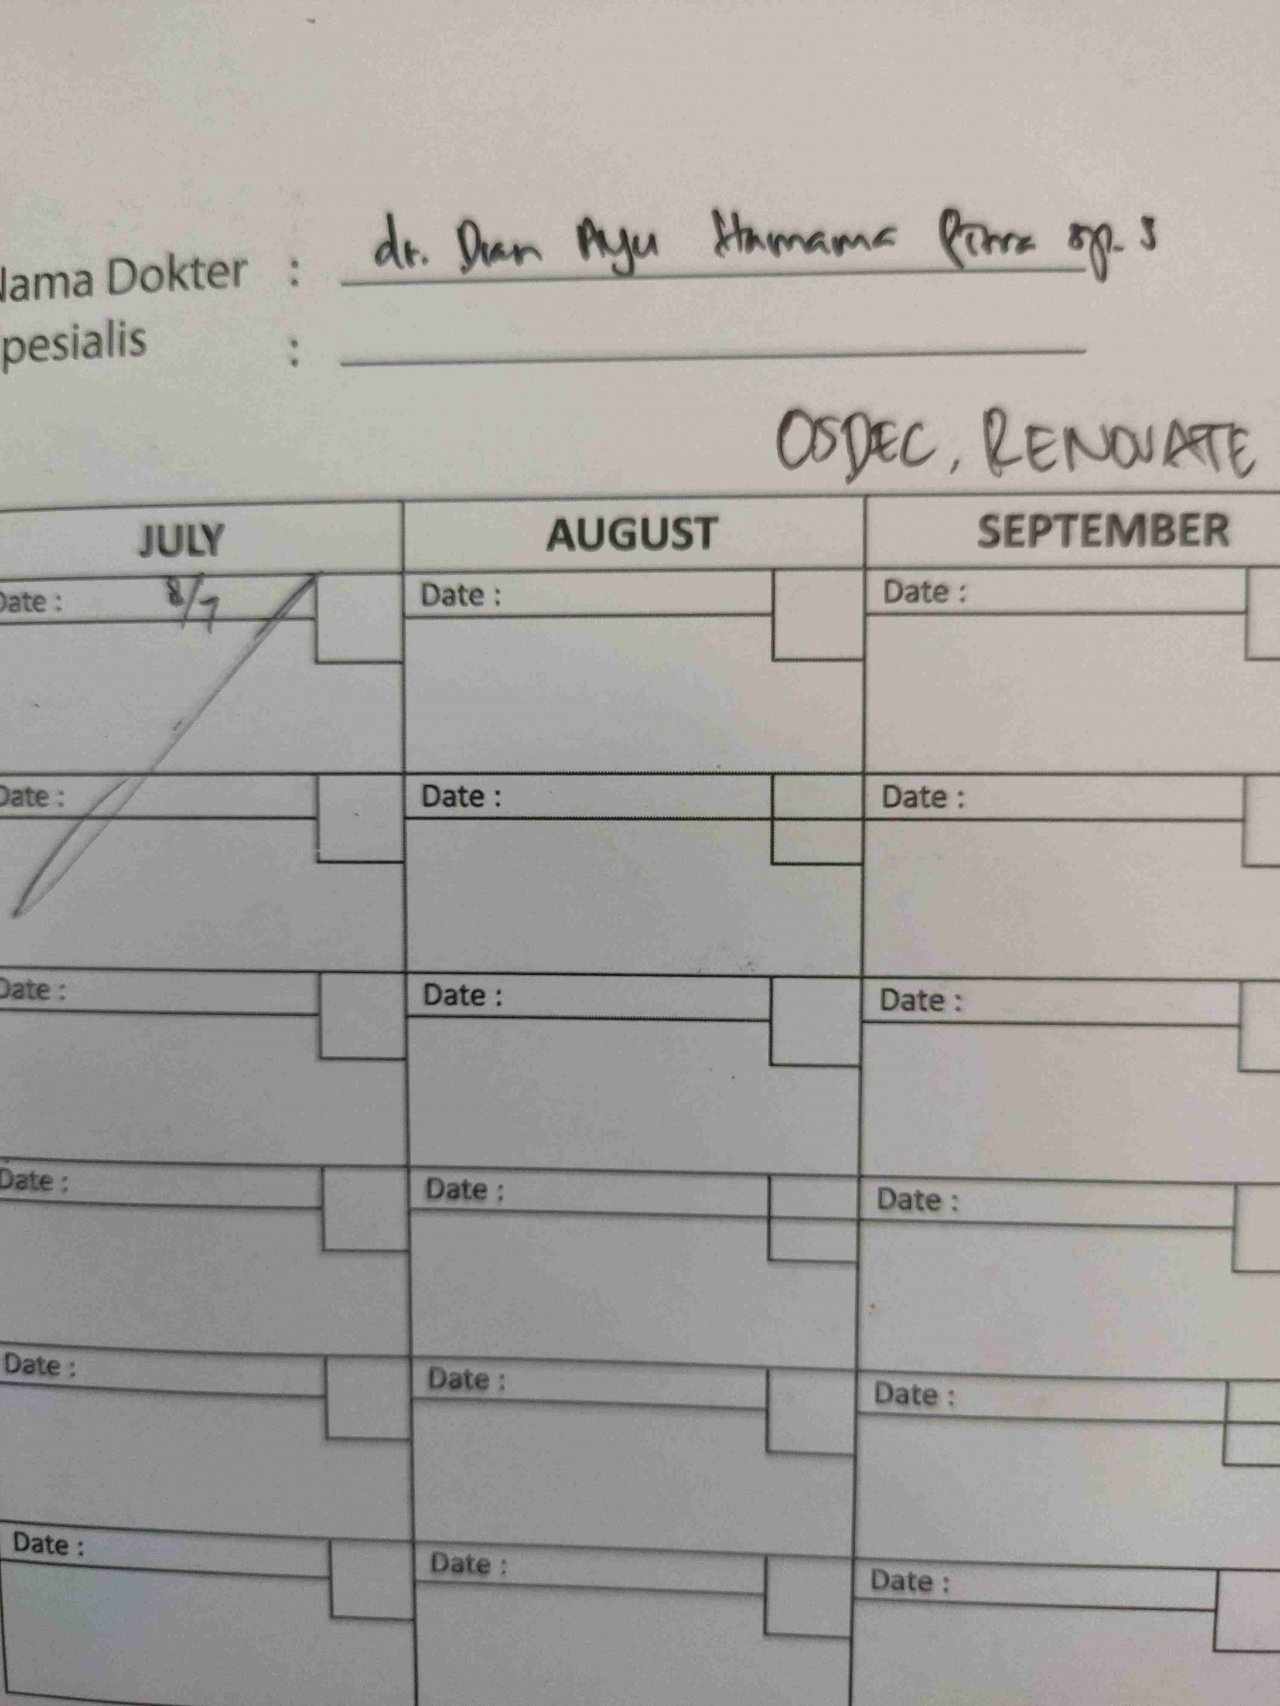 Nama Dokter : dr. Dian Ayu sp. S
pesialis :
OSDEC, RENOVATE
JULY AUGUST SEPTEMBER
Date : 8/7 Date : Date :
Date : Date : Date :
Date : Date : Date :
Date : Date : Date :
Date : Date : Date :
Date : Date : Date :